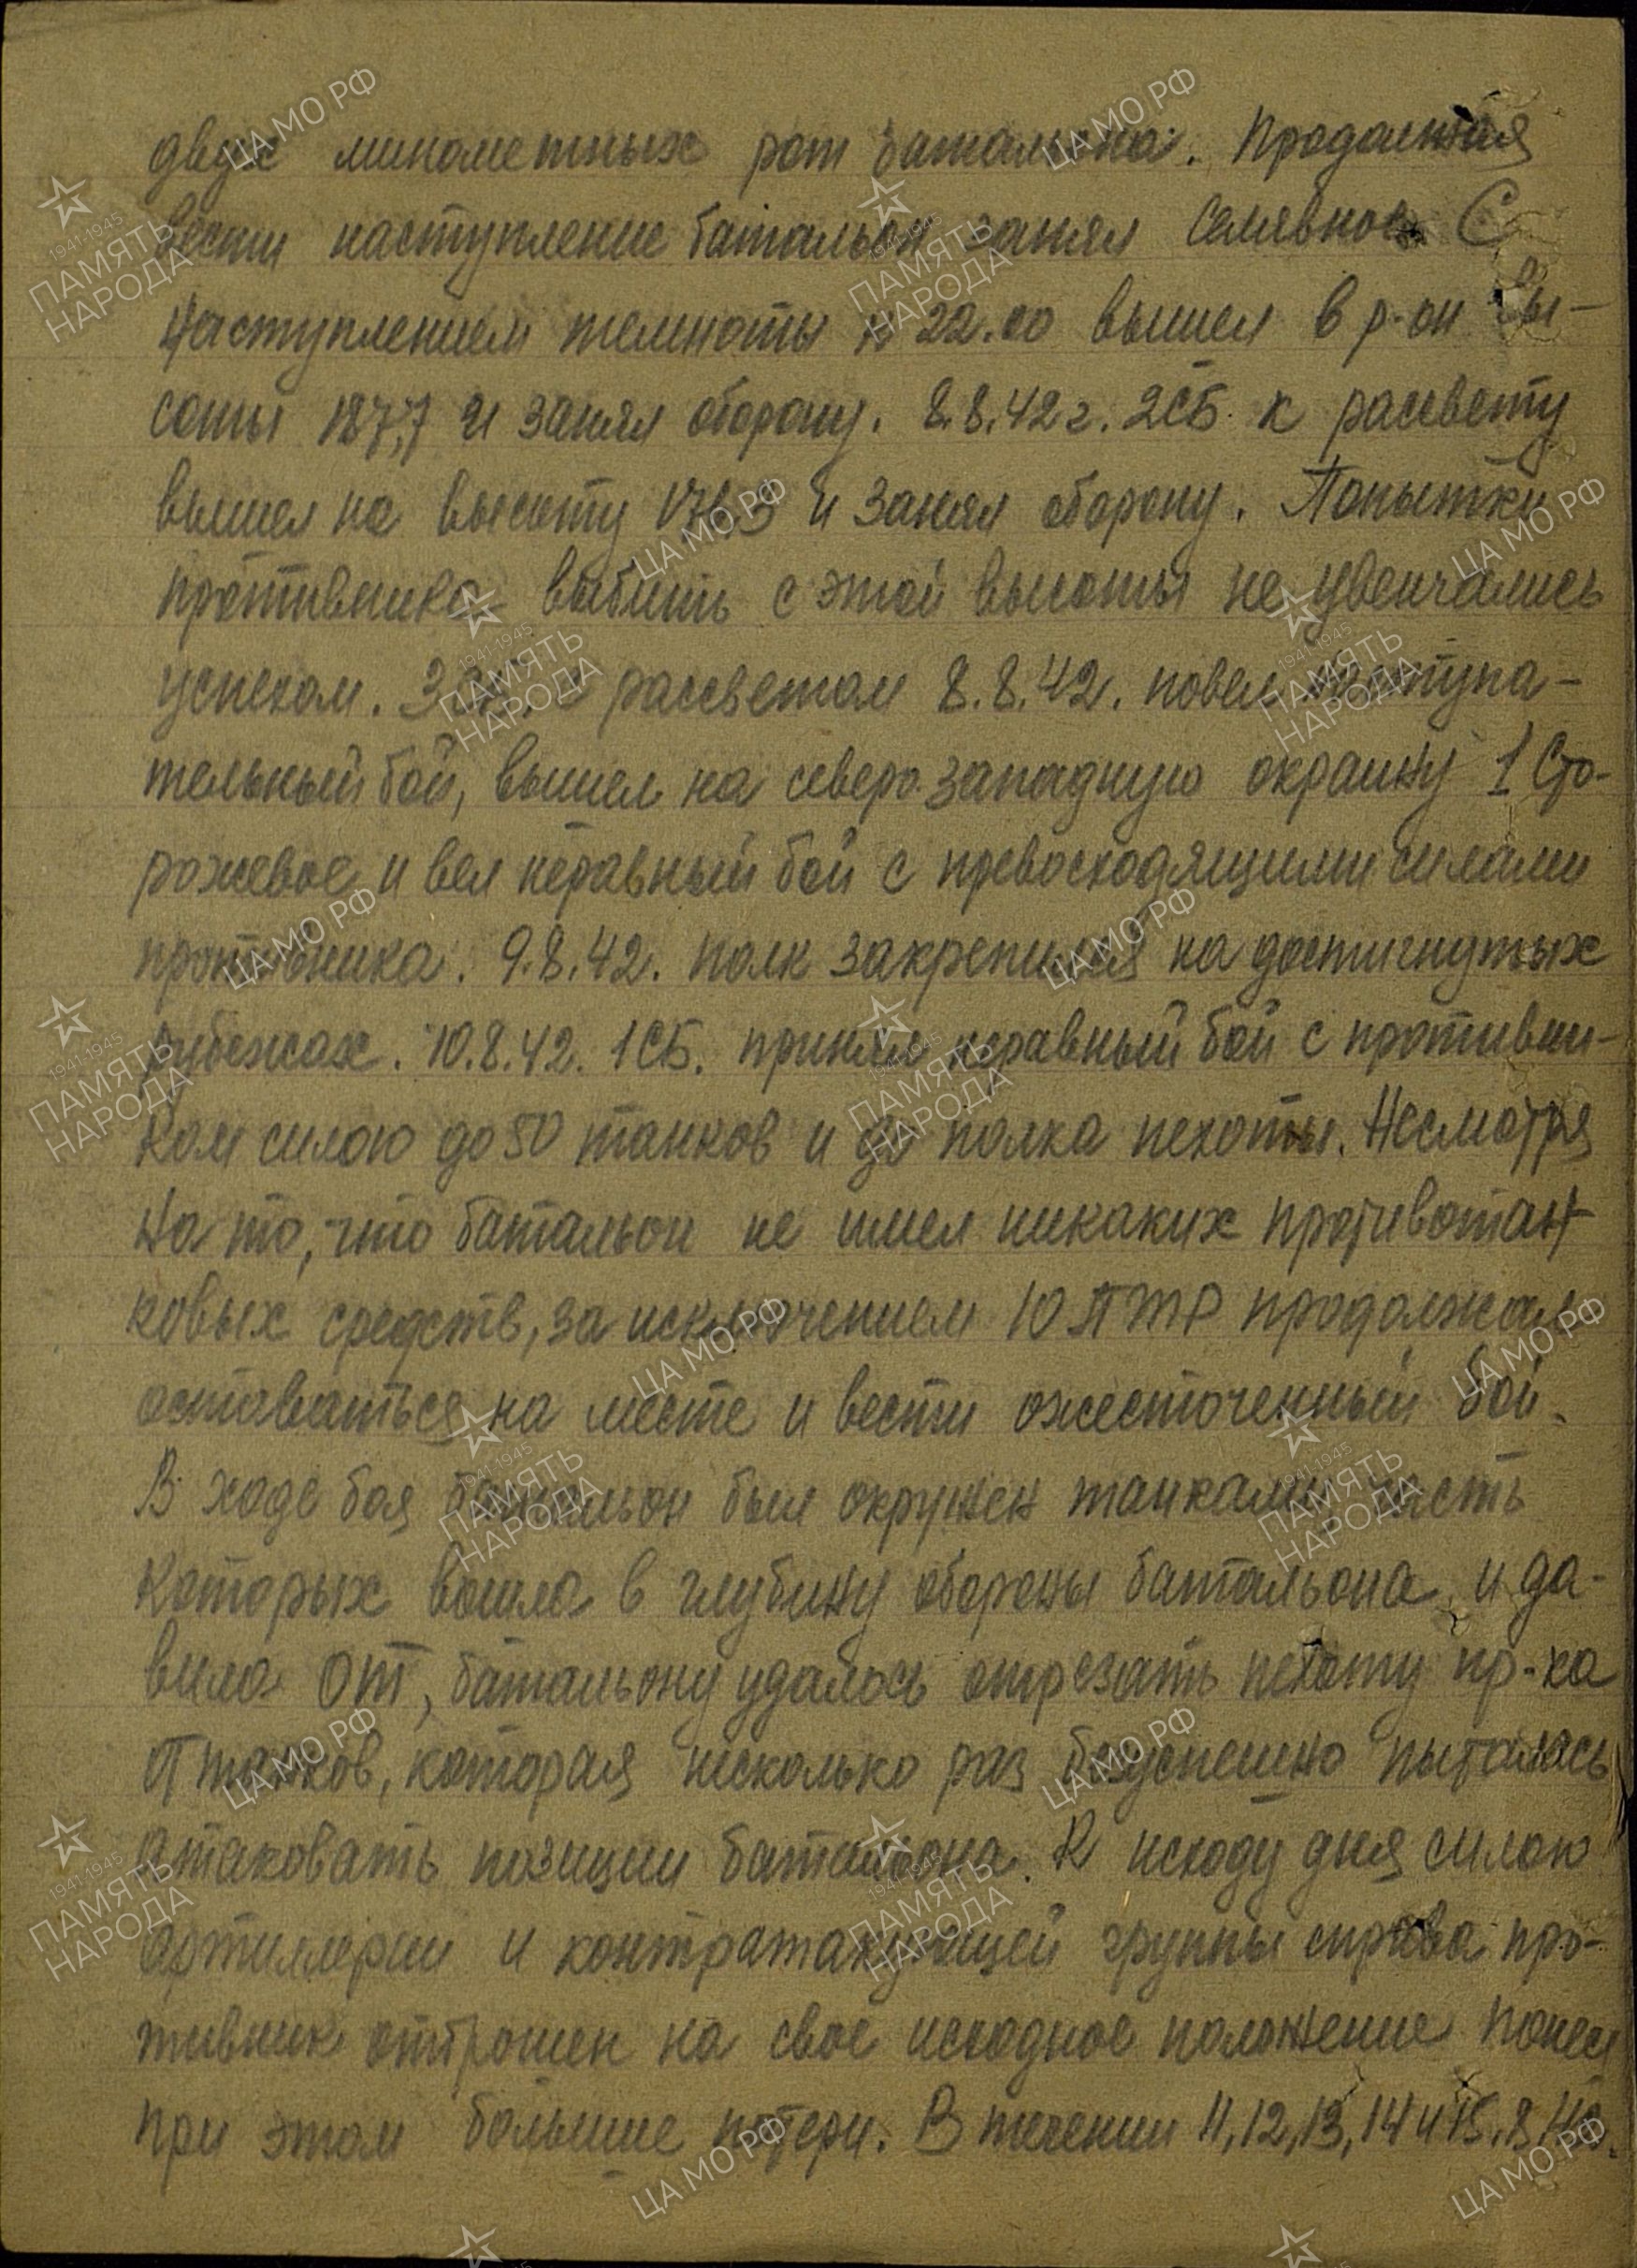 двух минометных рот батальона. Продолжая
вести наступление батальон занял Селявное. С
наступлением темноты к 22.00 вышел в р-он вы-
соты 187,7 и занял оборону. 8.8.42 г. 2СБ. к рассвету
вышел на высоту 176,3 и занял оборону. Попытки
противника выбить с этой высоты не увенчались
успехом. 3 СБ. с рассветом 8.8.42. повел наступа-
тельный бой, вышел на северо-западную окраину 1 Сто-
рожевое и вел неравный бой с превосходящими силами
противника. 9.8.42. полк закрепился на достигнутых
рубежах. 10.8.42. 1СБ. принял неравный бой с противни-
ком силою до 50 танков и до полка пехоты. Несмотря
на то, что батальон не имел никаких противотан-
ковых средств, за исключением 10 ПТР продолжал
оставаться на месте и вести ожесточенный бой.
В ходе боя батальон был окружен танками, часть
которых вошла в глубину обороны батальона и да-
вила ОТ, батальону удалось отрезать пехоту пр-ка
от танков, которая несколько раз безуспешно пыталась
атаковать позиции батальона. К исходу дня силою
артиллерии и контратакующей группы справа про-
тивник отброшен на свое исходное положение понеся
при этом большие потери. В течении 11, 12, 13, 14 и 15.8.42.
ЦА МО РФ
1941-1945
ПАМЯТЬ
НАРОДА